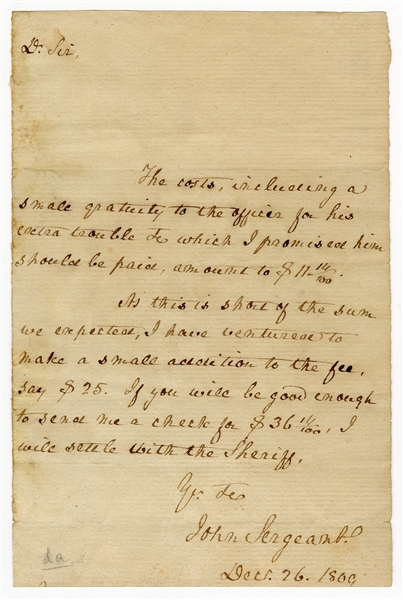 Dr. Sir,
The costs, including a
small gratuity to the officer for his
extra trouble &c which I promised him
should be paid, amount to $11 14/100.
As this is short of the sum
we expected, I have ventured to
make a small addition to the fee,
say $25. If you will be good enough
to send me a check for $36 14/100, I
will settle with the Sheriff.
Yr. &c
John Sergeant.
Decr. 26. 1809